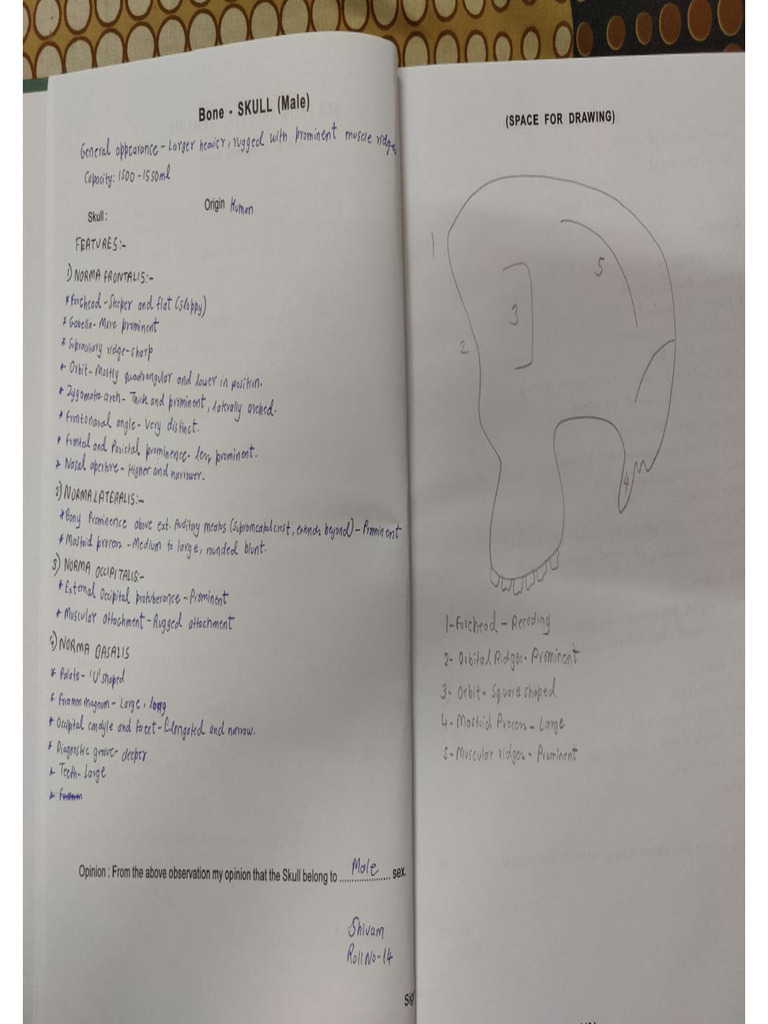 Bone - SKULL (Male)
General appearance - Larger heavier, rugged with prominent muscle ridge
Capacity: 1500 - 1550ml
Skull :
Origin Human
FEATURES:-
1) NORMA FRONTALIS:-
* Forehead - Steeper and flat (sloppy)
* Gabella - More prominent
* Supraciliary ridge - sharp
* Orbit - Mostly quadrangular and lower in position.
* Zygomatic arch - Thick and prominent, laterally arched.
* Frontonasal angle - Very distinct.
* Frontal and Parietal prominence - less prominent.
* Nasal aperture - Higher and narrower.
2) NORMA LATERALIS:-
* Bony Prominence above ext. Auditory meatus (supromeatal crest, extends beyond) - Prominent
* Mastoid process - Medium to large, rounded blunt.
3) NORMA OCCIPITALIS:-
* External Occipital protuberance - Prominent
* Muscular attachment - Rugged attachment
4) NORMA BASALIS
* Palate - 'U' shaped
* Foramen magnum - Large, long
* Occipital condyle and facet - Elongated and narrow.
* Diagnostic groove - deeper
* Teeth - Large
Opinion : From the above observation my opinion that the Skull belong to Male sex.
Shivam
Roll No - 14
(SPACE FOR DRAWING)
1
5
3
2
4
1- Forehead - Receding
2- Orbital Ridges - Prominent
3- Orbit - Square shaped
4- Mastoid Process - Large
5- Muscular ridges - Prominent